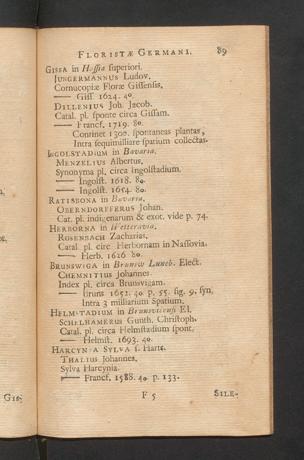 FLORISTÆ GERMANI. 89
GISSA in Hassia superiori.
JUNGERMANNUS Ludov.
Cornucopiæ Floræ Gissensis,
—— Giss. 1624. 4o.
DILLENIUS Joh. Jacob.
Catal. pl. sponte circa Gissam.
—— Francf. 1719. 8o.
Continet 1300. spontaneas plantas,
Intra sequimilliare spatium collectas.
INGOLSTADIUM in Bavaria,
MENZELIUS Albertus,
Synonyma pl. circa Ingolstadium.
—— Ingolst. 1618. 8o.
—— Ingolst. 1654. 8o.
RATISBONA in Bavaria,
OBERNDORFFERUS Johan.
Cat. pl. indigenarum & exot. vide p. 74.
HERBORNA in Wetteravia,
ROSENBACH Zacharias,
Catal. pl. circ Herbornam in Nassovia.
—— Herb. 1626 8o
BRUNSWIGA in Brunsw Luneb. Elect.
CHEMNITIUS Johannes.
Index pl. circa Brunsvigam.
—— Bruns 1652. 4o p. 55. fig. 9. syn.
Intra 3 milliarium Spatium,
HELMSTADIUM in Brunsvicensi El.
SCHELHAMERUS Gunth. Christoph.
Catal. pl. circa Helmstadium spont.
—— Helmst. 1693. 4o.
HARCYNIA SYLVA s. Harts.
THALIUS Johannes,
Sylva Harcynia.
—— Francf. 1588. 4o p. 133.
F 5 SILE-